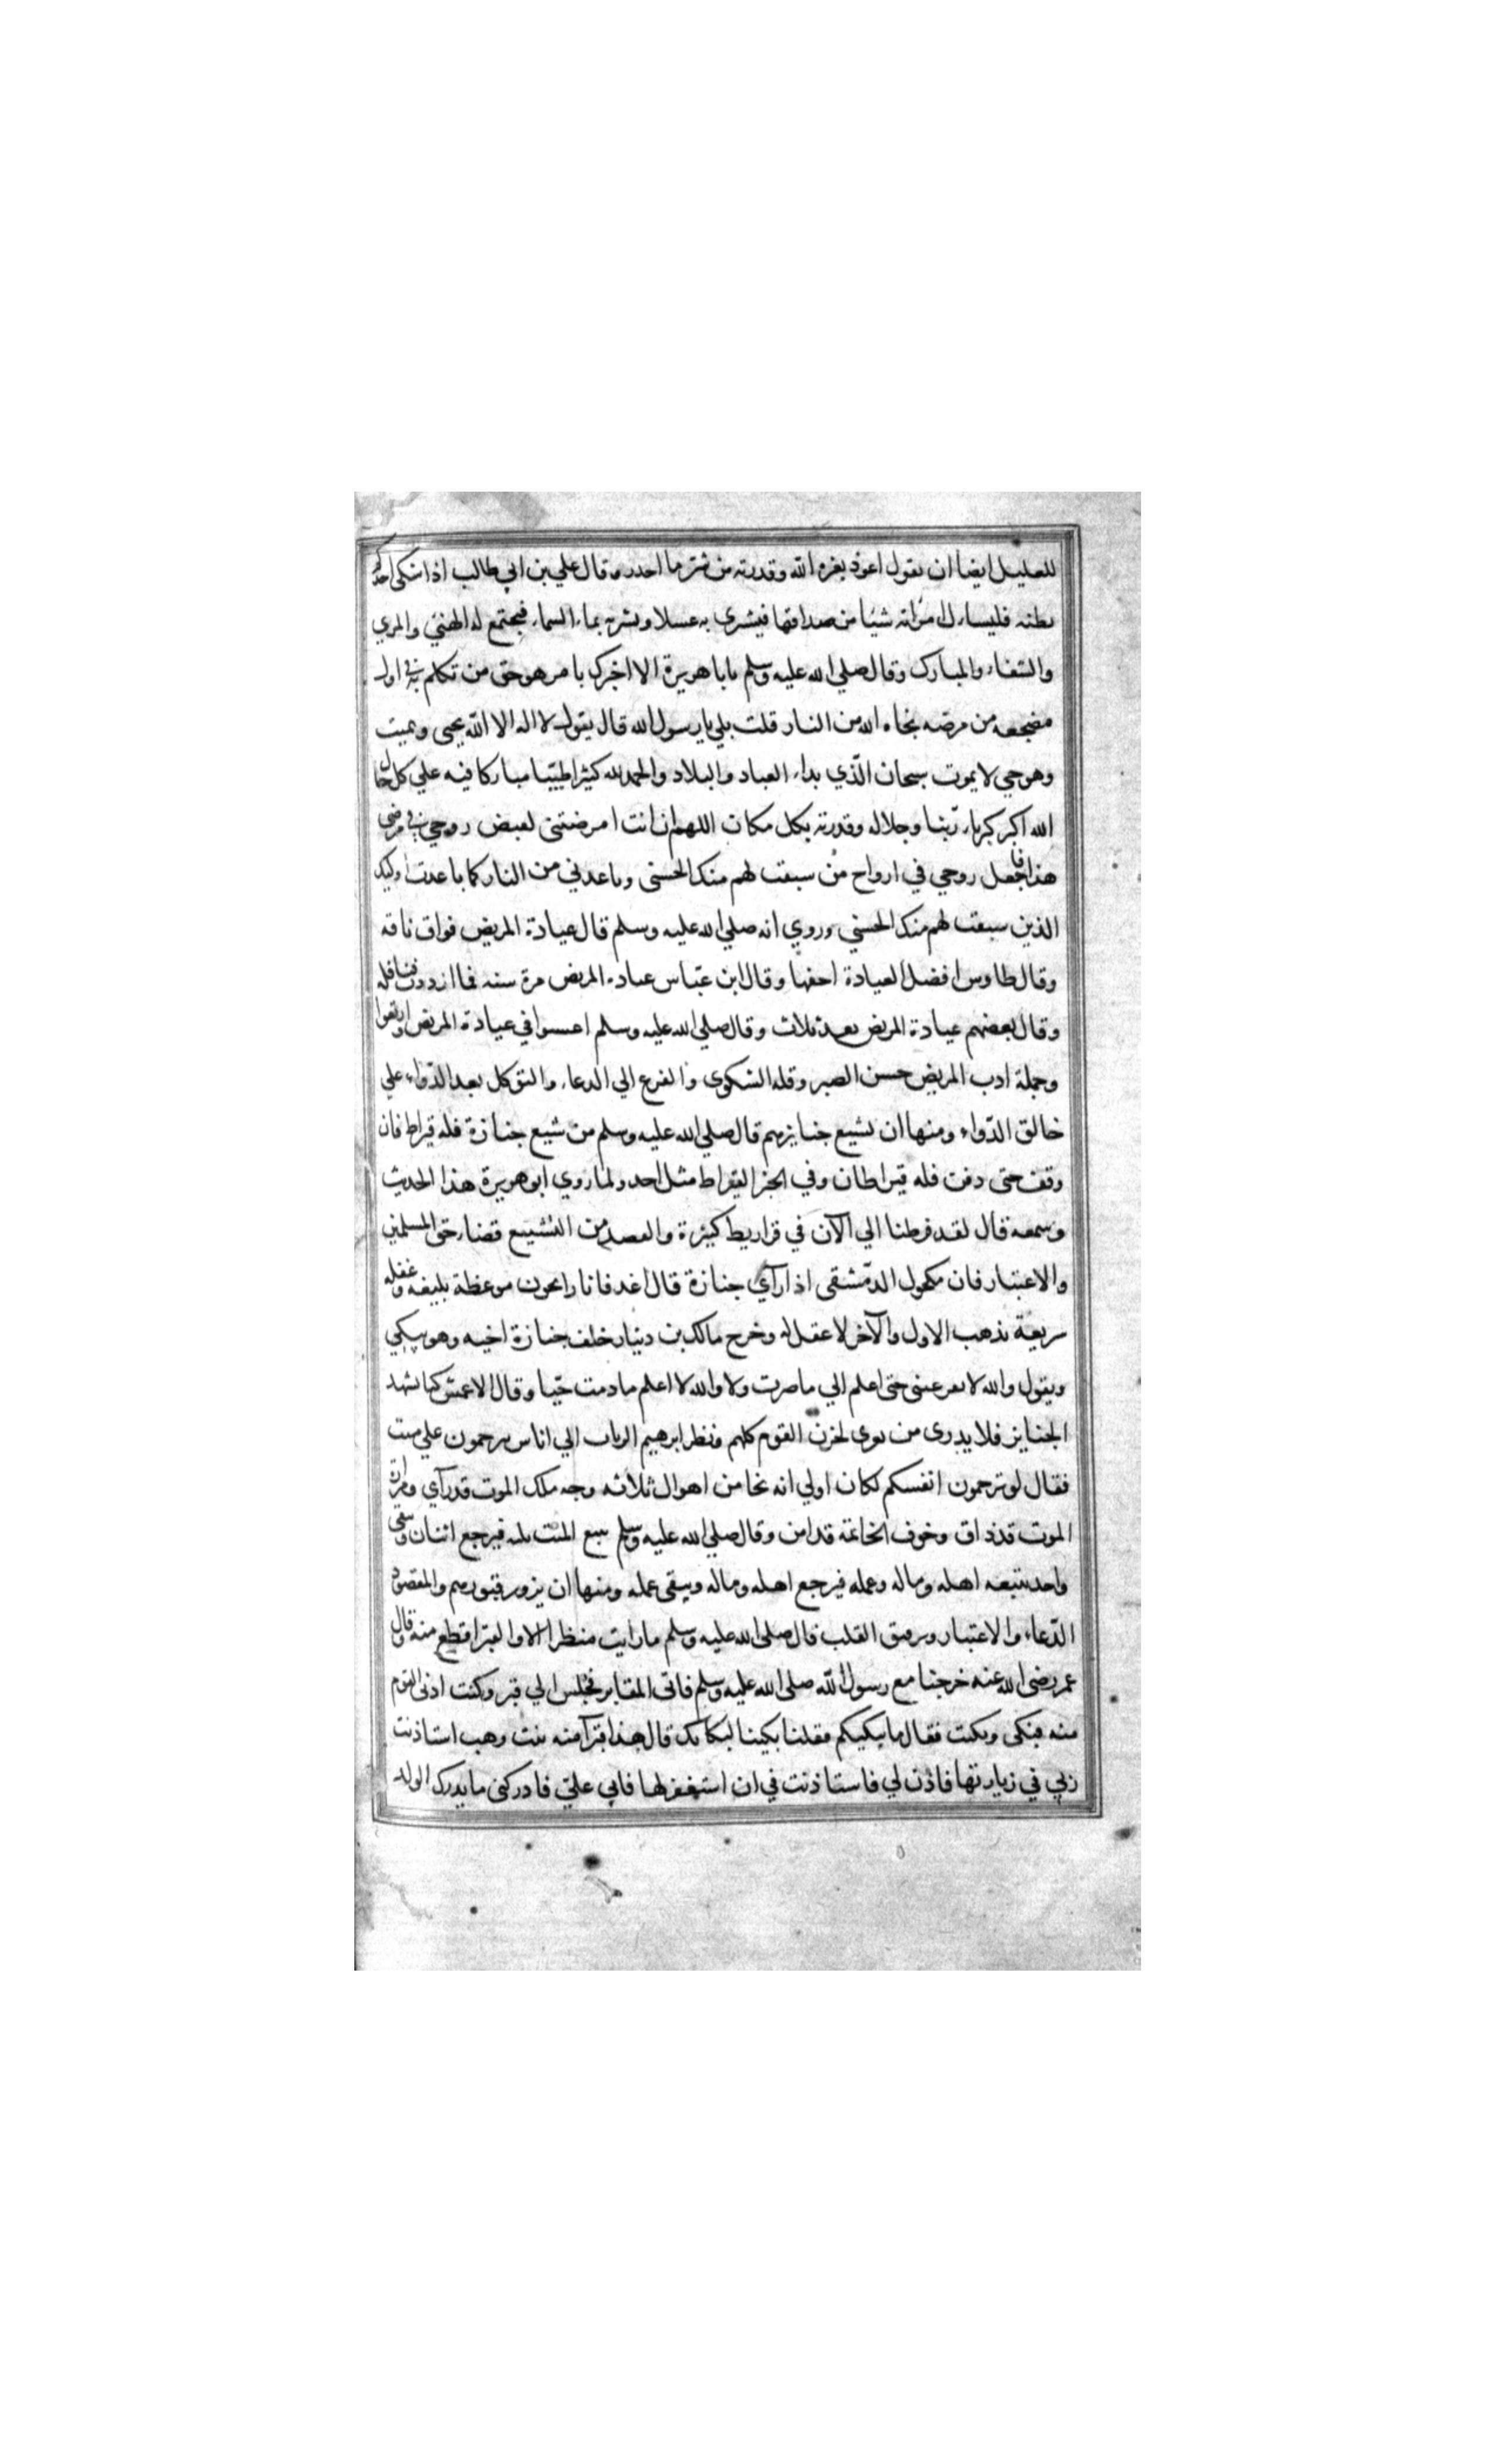 للعليل ايضا ان يقول اعوذ بعزة الله وقدرته من شر ما اجد وقال علي بن ابي طالب اذا اشتكى احدكم
بطنه فليسأل امراته شيا من صداقها فيشترى به عسلا ويشربه بماء السماء فيجتمع له الهنئ والمري
والشفاء والمبارك وقال صلي الله عليه وسلم يابا هريرة الا اخبرك بامر هو حق من تكلم به في اول
مضجعه من مرضه نجاه الله من النار قلت بلي يا رسول الله قال يقول لا اله الا الله يحيى ويميت
وهو حي لا يموت سبحان الّذي بداء العباد والبلاد والحمد لله كثيرا طيّبا مباركا فيه علي كل حال
الله اكبر كبرياء ربّنا وجلاله وقدرته بكل مكان اللهم ان انت امرضتنى لقبض روحي في مرضى
هذا فاجعل روحي في ارواح من سبقت لهم منك الحسنى وباعدني من النار كما باعدت اوليك
الذين سبقت لهم منك الحسني وروي انه صلي الله عليه وسلم قال عيادة المريض فواق ناقه
وقال طاوس افضل العيادة اخفها وقال ابن عبّاس عيادة المريض مرة سنه فما ازددت فنافله
وقال بعضهم عيادة المريض بعد ثلاث وقال صلي الله عليه وسلم اغبوا في عيادة المريض واربعوا
وجملة ادب المريض حسن الصبر وقله الشكوى والفزع الي الدعاء والتوكل بعد الدّواء علي
خالق الدّواء ومنها ان يشيع جنايزهم قال صلي الله عليه وسلم من شيع جنازة فله قيراط فان
وقف حتى دفن فله قيراطان وفي الخبر القيراط مثل احد ولما روي ابو هريرة هذا الحديث
وسمعه قال لقد فرطنا الي الآن في قراريط كثيرة والقصد من التشييع قضاء حق المسلمين
والاعتبار فان مكحول الدّمشقى اذا رآي جنازة قال اغد فانا رايحون موعظة بليغه وغفله
سريعة يذهب الاول والآخر لا عقل له وخرج مالك بن دينار خلف جنازة اخيه وهو يبكي
ويقول والله لا تقر عينى حتى اعلم الي ما صرت ولا والله لا اعلم ما دمت حيّا وقال الاعمش كنا نشهد
الجنايز فلا يدرى من نعزى لحزن القوم كلهم ونظر ابرهيم الزيات الي اناس يترحمون علي ميت
فقال لو ترحمون انفسكم لكان اولي انه نجا من اهوال ثلاثه وجه ملك الموت قد رآي ومرارة
الموت قد ذاق وخوف الخاتمة قد امن وقال صلي الله عليه وسلم يتبع الميت ثلثه فيرجع اثنان ويبقى
واحد يتبعه اهله وماله وعمله فيرجع اهله وماله ويبقى عمله ومنها ان يزور قبورهم والمقصود
الدّعاء والاعتبار وترقيق القلب قال صلى الله عليه وسلم ما رايت منظرا الا والقبر افظع منه وقال
عمر رضى الله عنه خرجنا مع رسول الله صلى الله عليه وسلم فاتى المقابر فجلس الي قبر وكنت ادنى القوم
منه فبكى وبكيت فقال ما يبكيكم فقلنا بكينا لبكائك قال هذا قبر آمنه بنت وهب استاذنت
ربي في زيارتها فاذن لي فاستاذنت في ان استغفر لها فابي عليّ فادركنى ما يدرك الولد